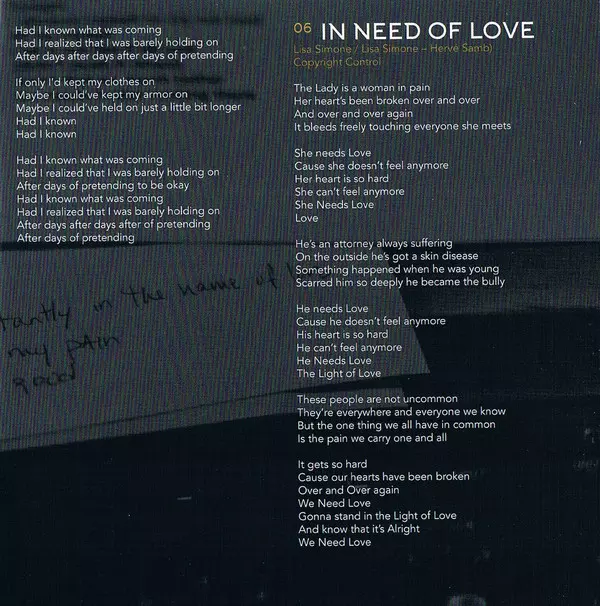 Had I known what was coming
Had I realized that I was barely holding on
After days after days after days of pretending
If only I'd kept my clothes on
Maybe I could've kept my armor on
Maybe I could've held on just a little bit longer
Had I known
Had I known
Had I known what was coming
Had I realized that I was barely holding on
After days of pretending to be okay
Had I known what was coming
Had I realized that I was barely holding on
After days after days after of pretending
After days of pretending
06 IN NEED OF LOVE
Lisa Simone / Lisa Simone – Hervé Samb)
Copyright Control
The Lady is a woman in pain
Her heart's been broken over and over
And over and over again
It bleeds freely touching everyone she meets
She needs Love
Cause she doesn't feel anymore
Her heart is so hard
She can't feel anymore
She Needs Love
Love
He's an attorney always suffering
On the outside he's got a skin disease
Something happened when he was young
Scarred him so deeply he became the bully
He needs Love
Cause he doesn't feel anymore
His heart is so hard
He can't feel anymore
He Needs Love
The Light of Love
These people are not uncommon
They're everywhere and everyone we know
But the one thing we all have in common
Is the pain we carry one and all
It gets so hard
Cause our hearts have been broken
Over and Over again
We Need Love
Gonna stand in the Light of Love
And know that it's Alright
We Need Love
tantly in the name of
my pain